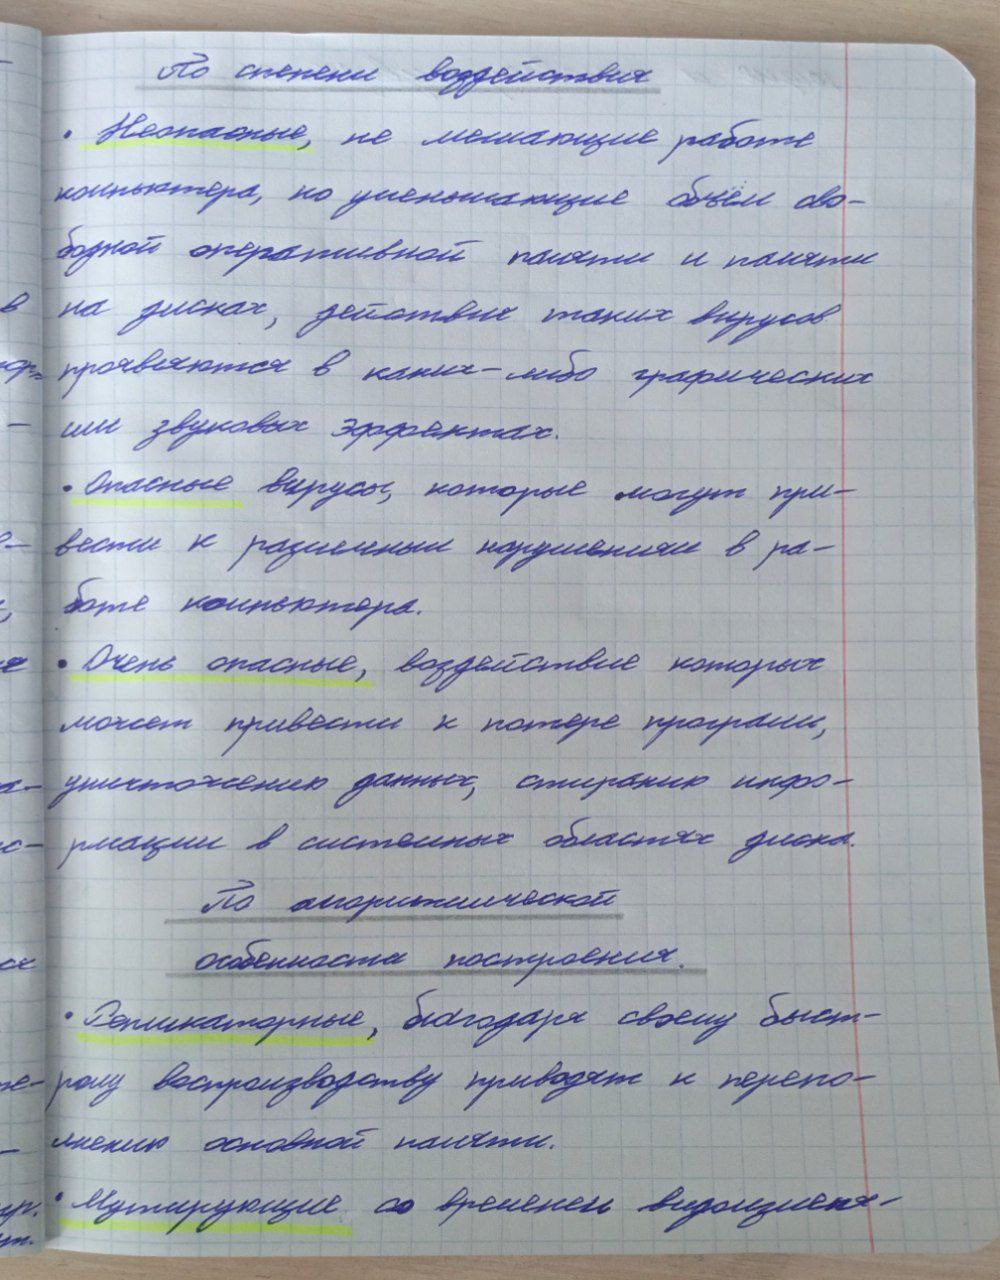 По степени воздействия
• Неопасные, не мешающие работе
компьютера, но уменьшающие объём сво-
бодной оперативной памяти и памяти
на дисках, действия таких вирусов
проявляются в каких-либо графических
или звуковых эффектах.
• Опасные вирусы, которые могут при-
вести к различным нарушениям в ра-
боте компьютера.
• Очень опасные, воздействие которых
может привести к потере программ,
уничтожению данных, стиранию инфо-
рмации в системных областях диска.
По алгоритмической
особенности построения.
• Репликаторные, благодаря своему быст-
рому воспроизводству приводят к перепо-
лнению основной памяти.
• Мутирующие со временем видоизменя-